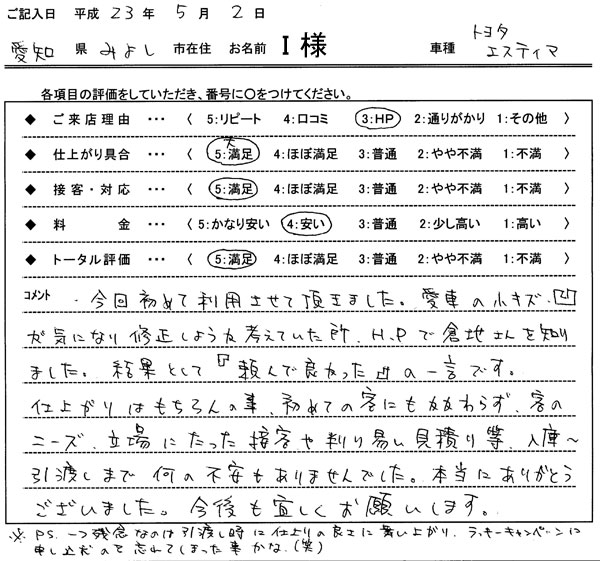 ご記入日 平成 23 年 5 月 2 日
愛知 県 みよし 市在住 お名前 I 様 車種 トヨタ エスティマ
各項目の評価をしていただき、番号に○をつけてください。
◆ ご来店理由 ・・・ 〈 5:リピート 4:口コミ 3:HP 2:通りがかり 1:その他 〉
◆ 仕上がり具合 ・・・ 〈 大 5:満足 4:ほぼ満足 3:普通 2:やや不満 1:不満 〉
◆ 接客・対応 ・・・ 〈 5:満足 4:ほぼ満足 3:普通 2:やや不満 1:不満 〉
◆ 料金 ・・・ 〈 5:かなり安い 4:安い 3:普通 2:少し高い 1:高い 〉
◆ トータル評価 ・・・ 〈 5:満足 4:ほぼ満足 3:普通 2:やや不満 1:不満 〉
コメント ・今回初めて利用させて頂きました。愛車の小キズ、凹
が気になり修正しようか考えていた所、H.Pで倉地さんを知り
ました。結果として『頼んで良かった』の一言です。
仕上がりはもちろんの事、初めての客にもかかわらず、客の
ニーズ、立場にたった接客や判り易い見積り等、入庫〜
引渡しまで何の不安もありませんでした。本当にありがとう
ございました。今後も宜しくお願いします。
※ PS. 一つ残念なのは引渡し時に仕上りの良さに舞い上がり、ラッキーキャンペーンに
申し込むので忘れてしまった事かな。(笑)